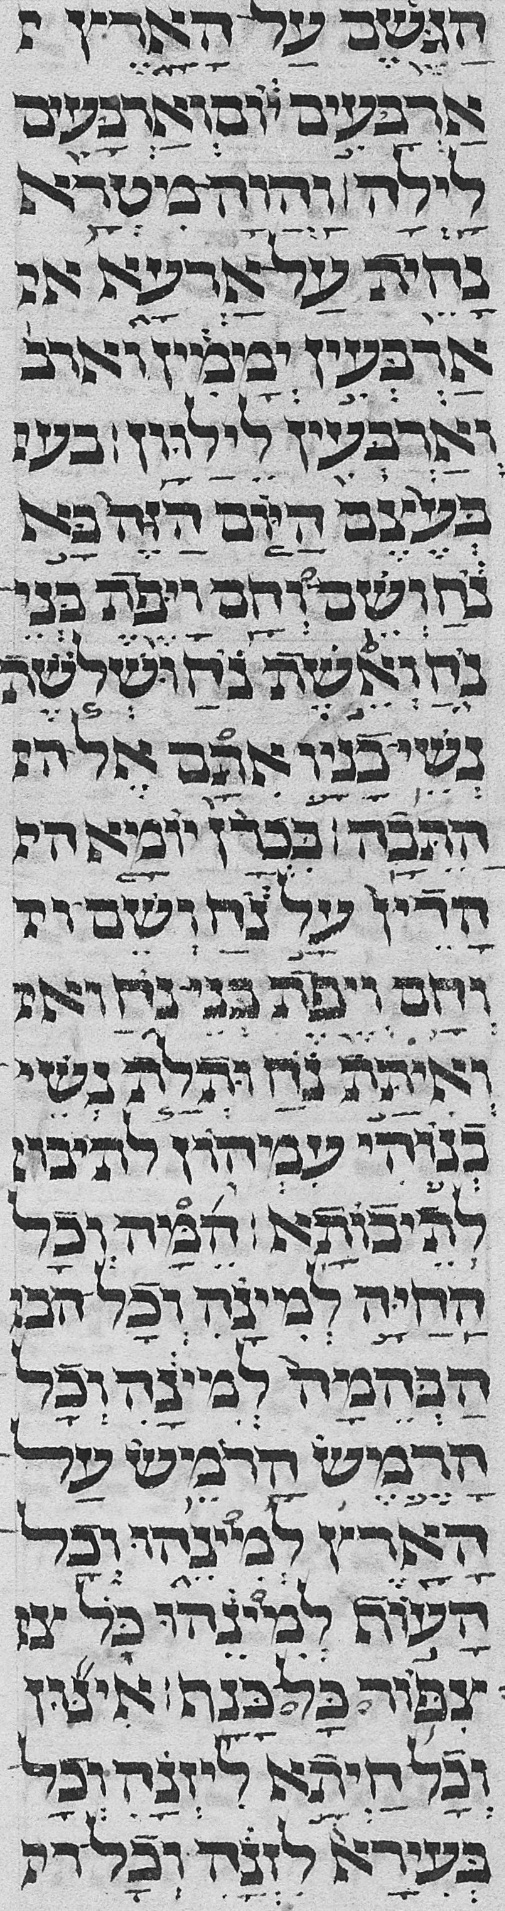 הגשם על הארץ ׀
ארבעים יום וארבעים
לילה׃ והוה מטרא
נחית על ארעא א׀
ארבעין יממין וארב
וארבעין לילוון׃ בעצ
בעצם היום הזה בא
נח ושם וחם ויפת בני
נח ואשת נח ושלשת
נשי בניו אתם אל הת
התבה׃ בכרן יומא ה׀
הדין על נח ושם וח
וחם ויפת בני נח וא׀
ואיתת נח ותלת נשי
בנוהי עמהון לתיבו
לתיבותא׃ המה וכל
החיה למינה וכל הבה
הבהמה למינה וכל
הרמש הרמש על
הארץ למינהו וכל
העוף למינהו כל צפ
צפור כל כנף׃ אינון
וכל חיתא ליזנה וכל
בעירא לזנה וכל ר׀